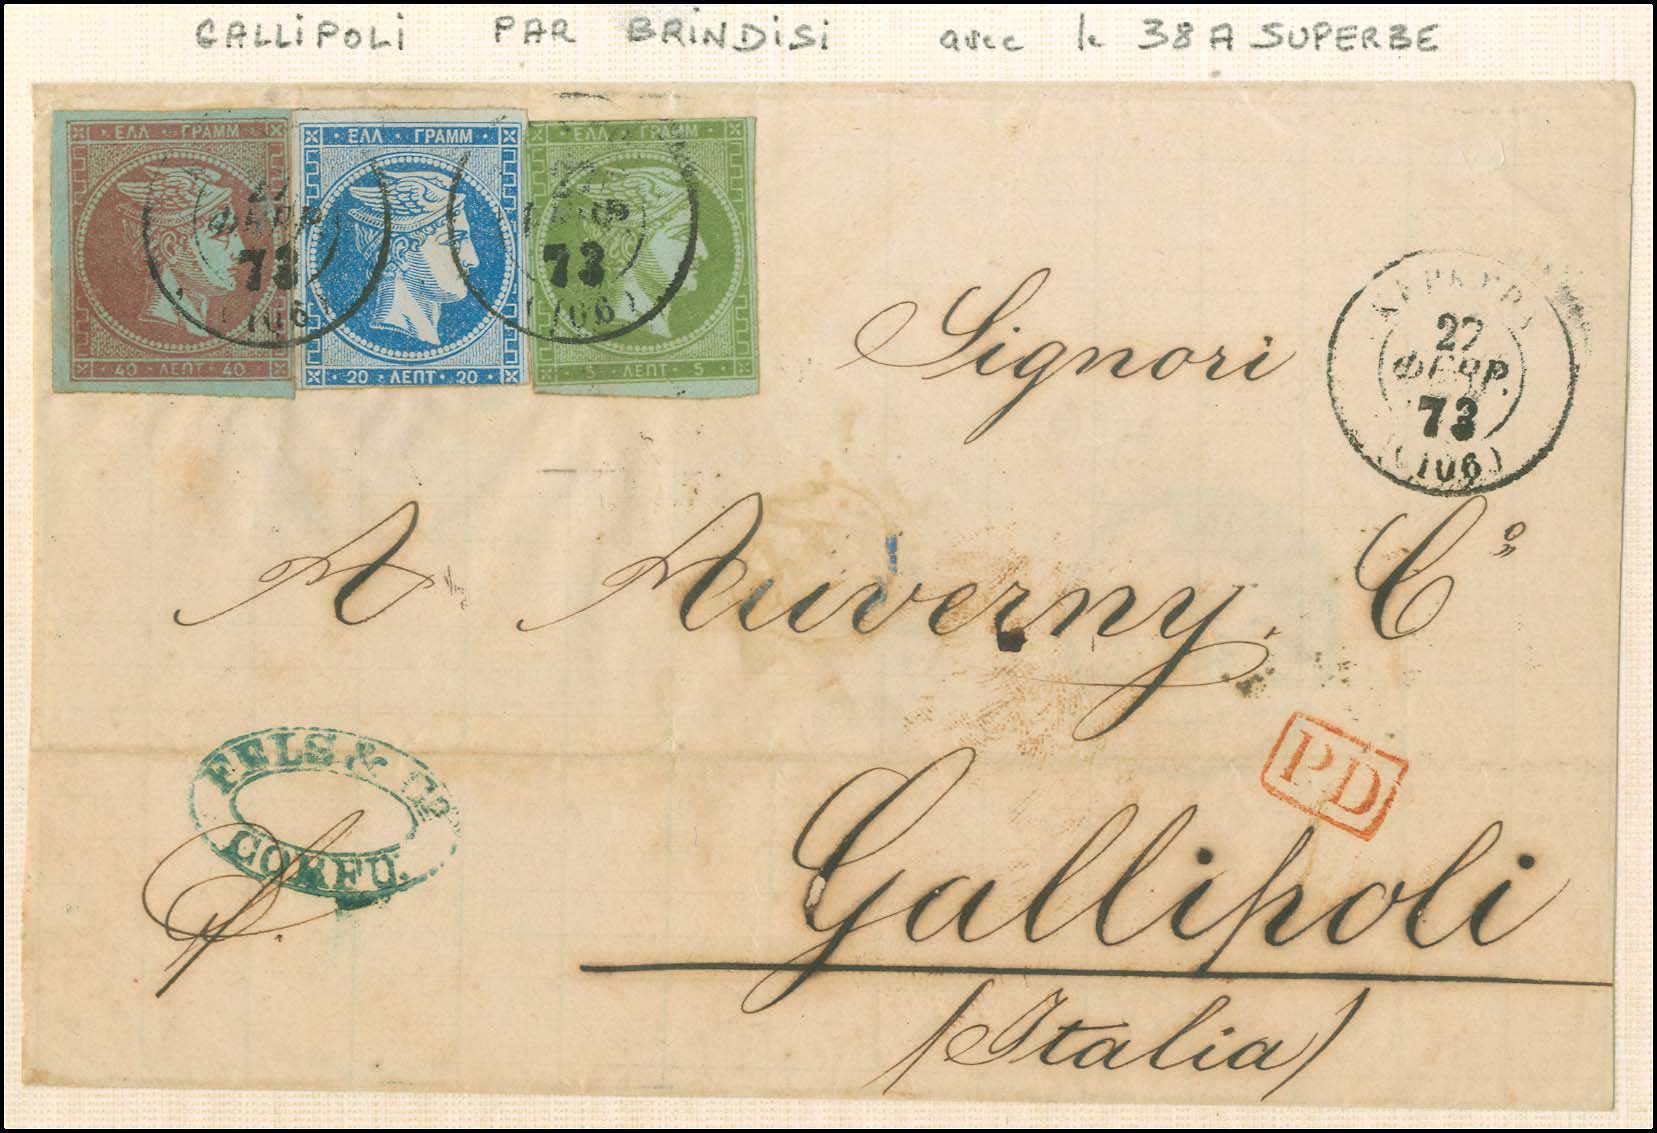 GALLIPOLI PAR BRINDISI avec le 38A SUPERBE
ΕΛΛ · ΓΡΑΜΜ
ΕΛΛ · ΓΡΑΜΜ
ΕΛΛ · ΓΡΑΜΜ
27
ΦΕΒΡ
73
(106)
27
73
(106)
40 ΛΕΠΤ 40
20 ΛΕΠΤ 20
5 ΛΕΠΤ 5
ΚΕΡΚΥΡΑ
27
ΦΕΒΡ.
73
(106)
Signori
A Auverny, Cº
PD
FELS & Cº
CORFU.
Gallipoli
(Italia)